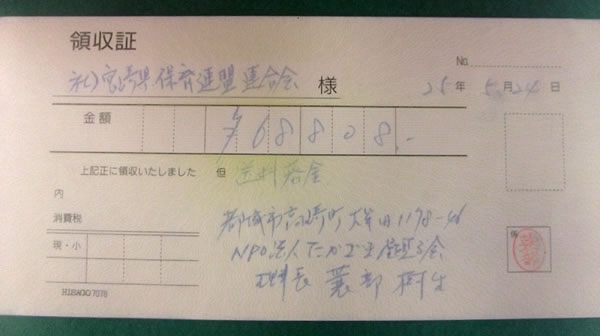 領収証
No.
社)宮崎県保育連盟連合会 様
25年 5月24日
金額 ¥68808.-
上記正に領収いたしました 但 送料募金
内
消費税
現・小
都城市高崎町大牟田1178-46
NPO法人たかざき
理事長
係
HISAGO 7078